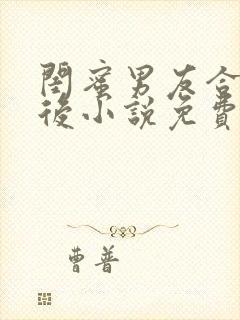 閨蜜男友合
後小說免費
曹普